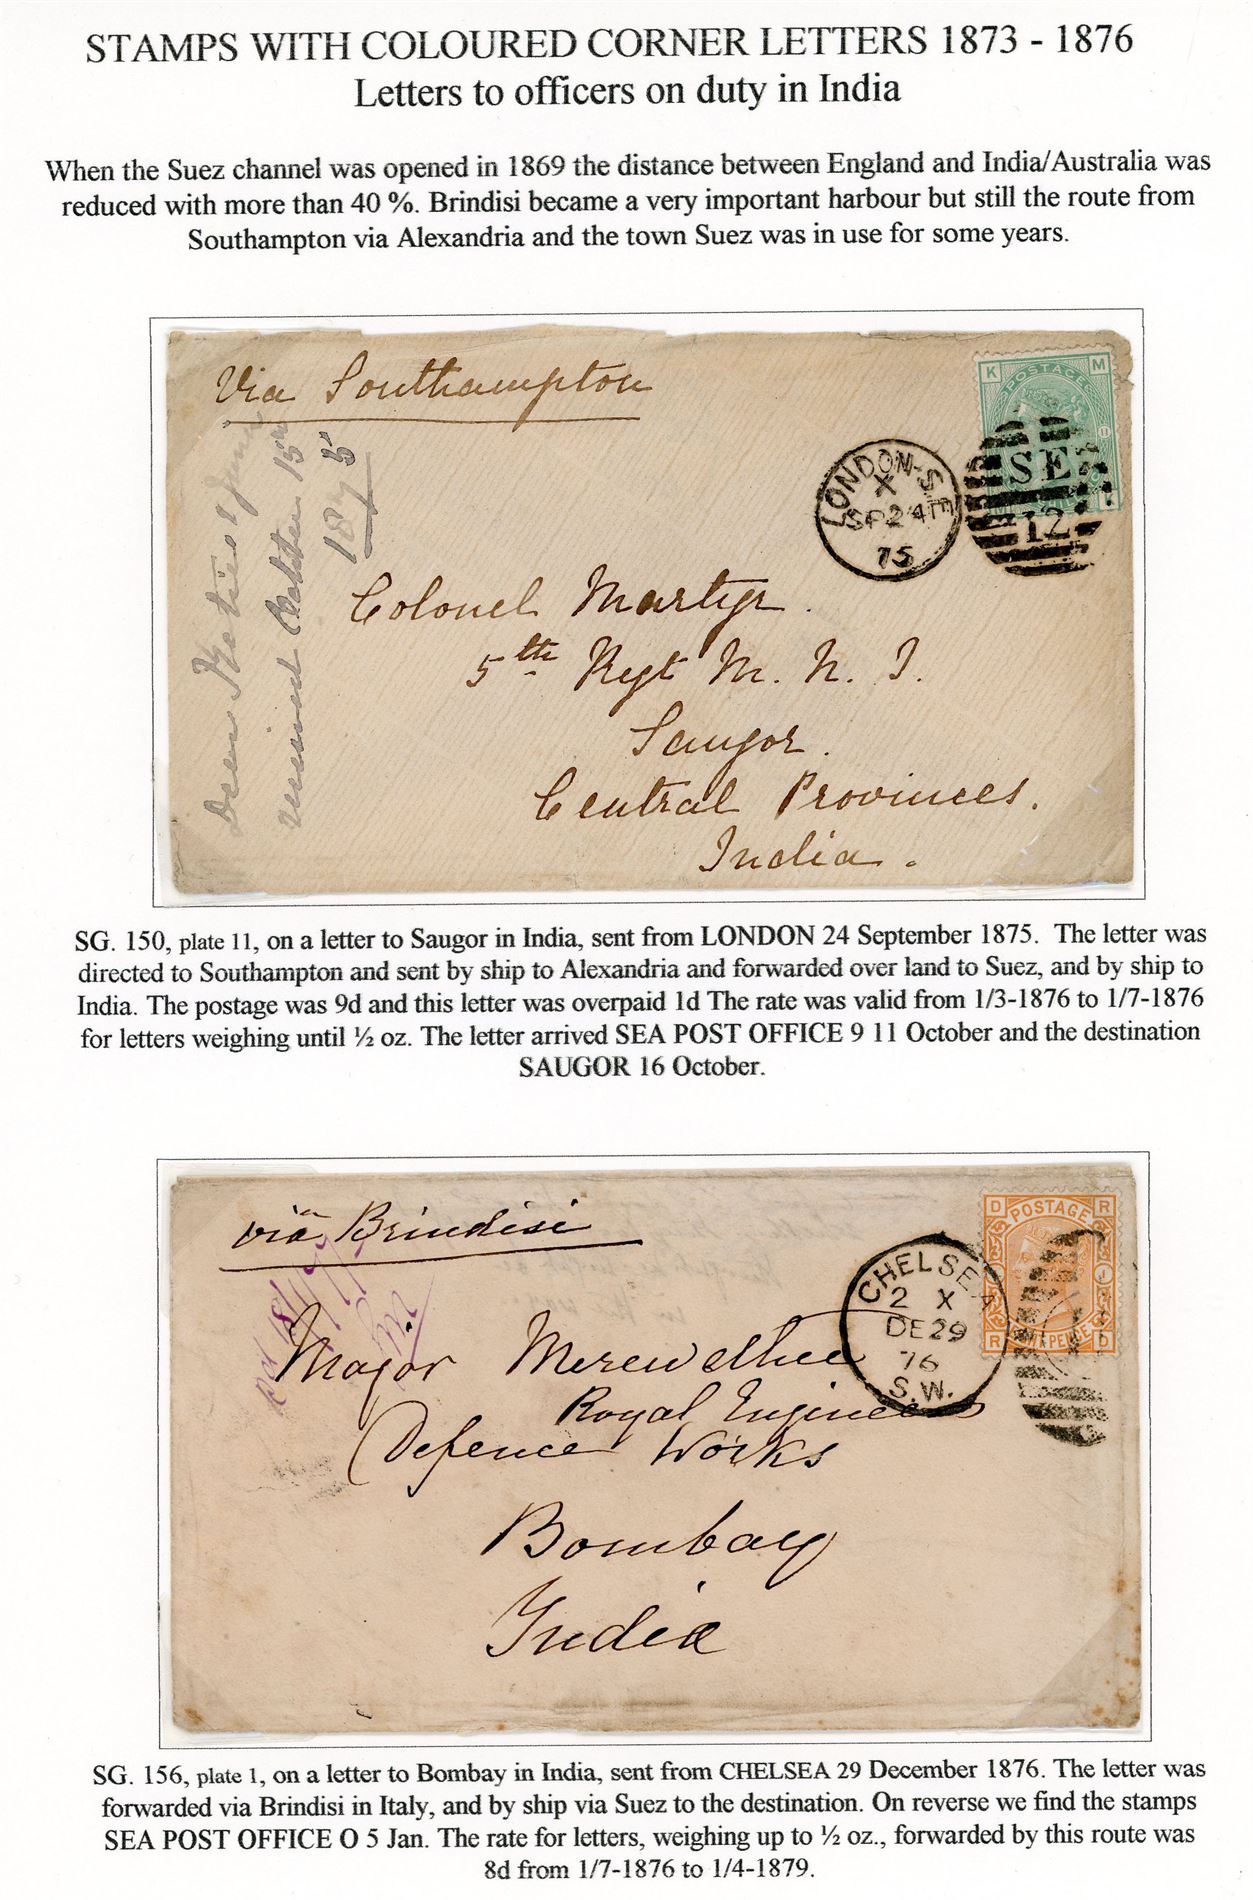 STAMPS WITH COLOURED CORNER LETTERS 1873 - 1876
Letters to officers on duty in India
When the Suez channel was opened in 1869 the distance between England and India/Australia was
reduced with more than 40 %. Brindisi became a very important harbour but still the route from
Southampton via Alexandria and the town Suez was in use for some years.
Via Southampton
received October 15th
1875
K M
POSTAGE
11
LONDON-S.E
X
SP 24
75
SE
12
Colonel Martyr.
5th Regt M. N. I.
Saugor.
Central Provinces.
India.
SG. 150, plate 11, on a letter to Saugor in India, sent from LONDON 24 September 1875. The letter was
directed to Southampton and sent by ship to Alexandria and forwarded over land to Suez, and by ship to
India. The postage was 9d and this letter was overpaid 1d The rate was valid from 1/3-1876 to 1/7-1876
for letters weighing until ½ oz. The letter arrived SEA POST OFFICE 9 11 October and the destination
SAUGOR 16 October.
via Brindisi
D R
POSTAGE
R D
CHELSEA
2 X
DE 29
76
S.W.
Major Merewether
Royal Engineers
Defence Works
Bombay
India
SG. 156, plate 1, on a letter to Bombay in India, sent from CHELSEA 29 December 1876. The letter was
forwarded via Brindisi in Italy, and by ship via Suez to the destination. On reverse we find the stamps
SEA POST OFFICE O 5 Jan. The rate for letters, weighing up to ½ oz., forwarded by this route was
8d from 1/7-1876 to 1/4-1879.